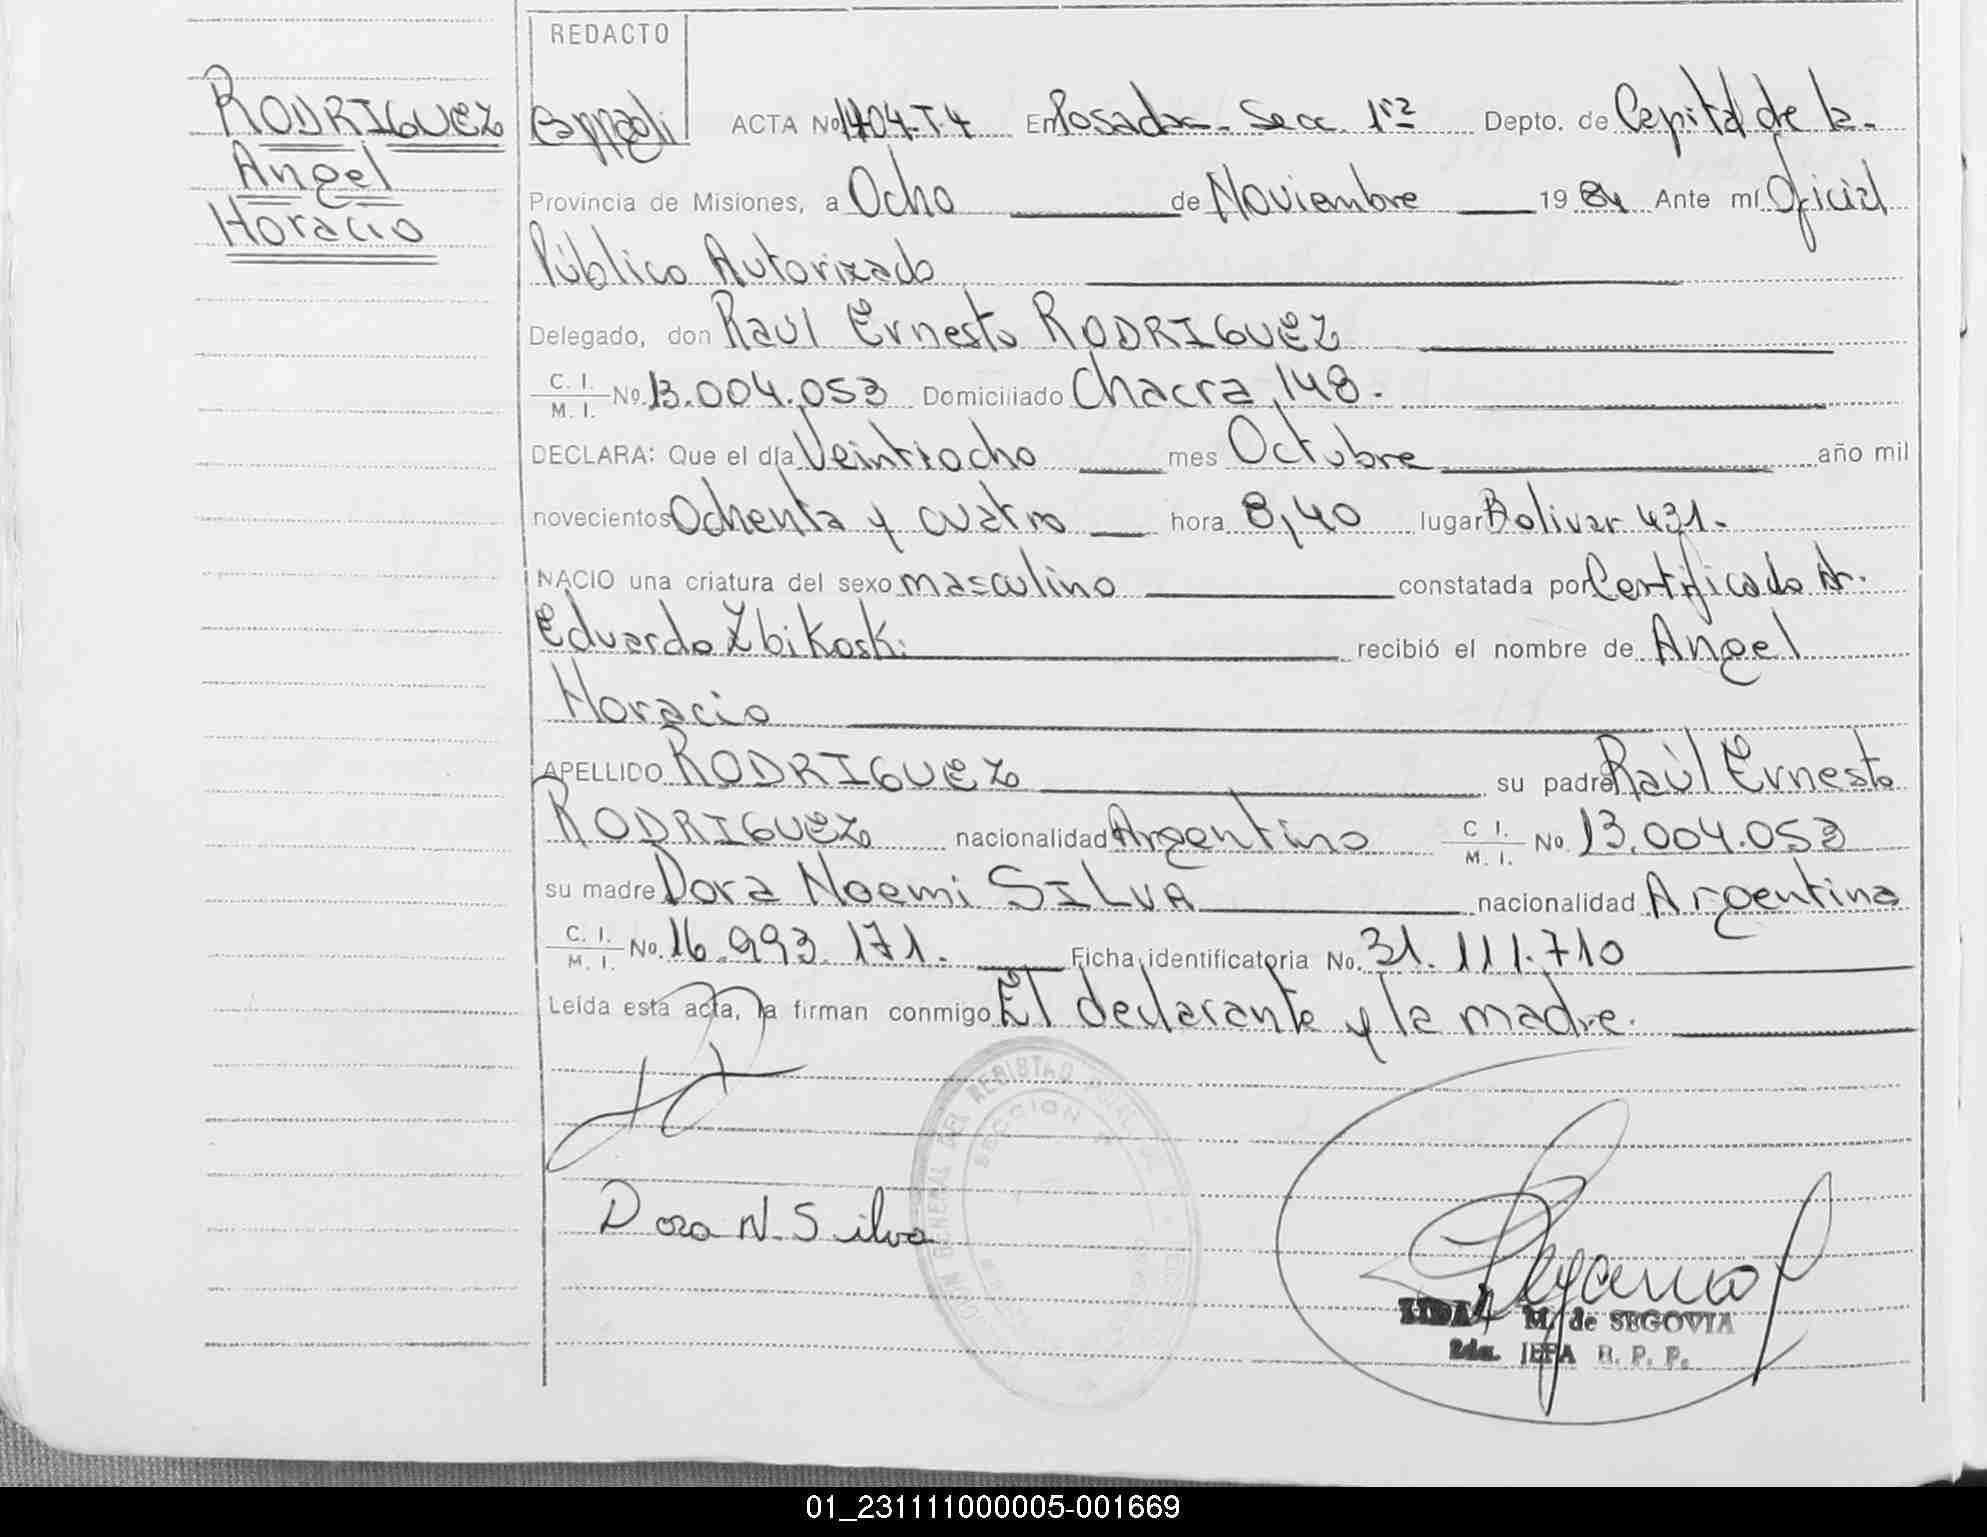 REDACTO
RODRIGUEZ
Angel
Horacio
ACTA No 1404-T.4 En Posadas - Secc. 1ra Depto. de Capital de la
Provincia de Misiones, a Ocho de Noviembre 19 84 Ante mí Oficial
Público Autorizado
Delegado, don Raúl Ernesto RODRIGUEZ
C. I. / M. I. No. 13.004.053 Domiciliado Chacra 148.
DECLARA: Que el día Veintiocho mes Octubre año mil
novecientos Ochenta y cuatro hora 8,40 lugar Bolivar 431.
NACIO una criatura del sexo masculino constatada por Certificado Dr.
Eduardo Zbikoski recibió el nombre de Angel
Horacio
APELLIDO RODRIGUEZ su padre Raúl Ernesto
RODRIGUEZ nacionalidad Argentino C I. / M. I. No. 13.004.053
su madre Dora Noemi SILVA nacionalidad Argentina
C. I. / M. I. No. 16.993.171. Ficha identificatoria No. 31.111.710
Leída esta acta, la firman conmigo El declarante y la madre.
Dora N. Silva
GENERAL DEL REGISTRO
SECCION
M. de SEGOVIA
2da. JEFA R. P. P.
01_231111000005-001669